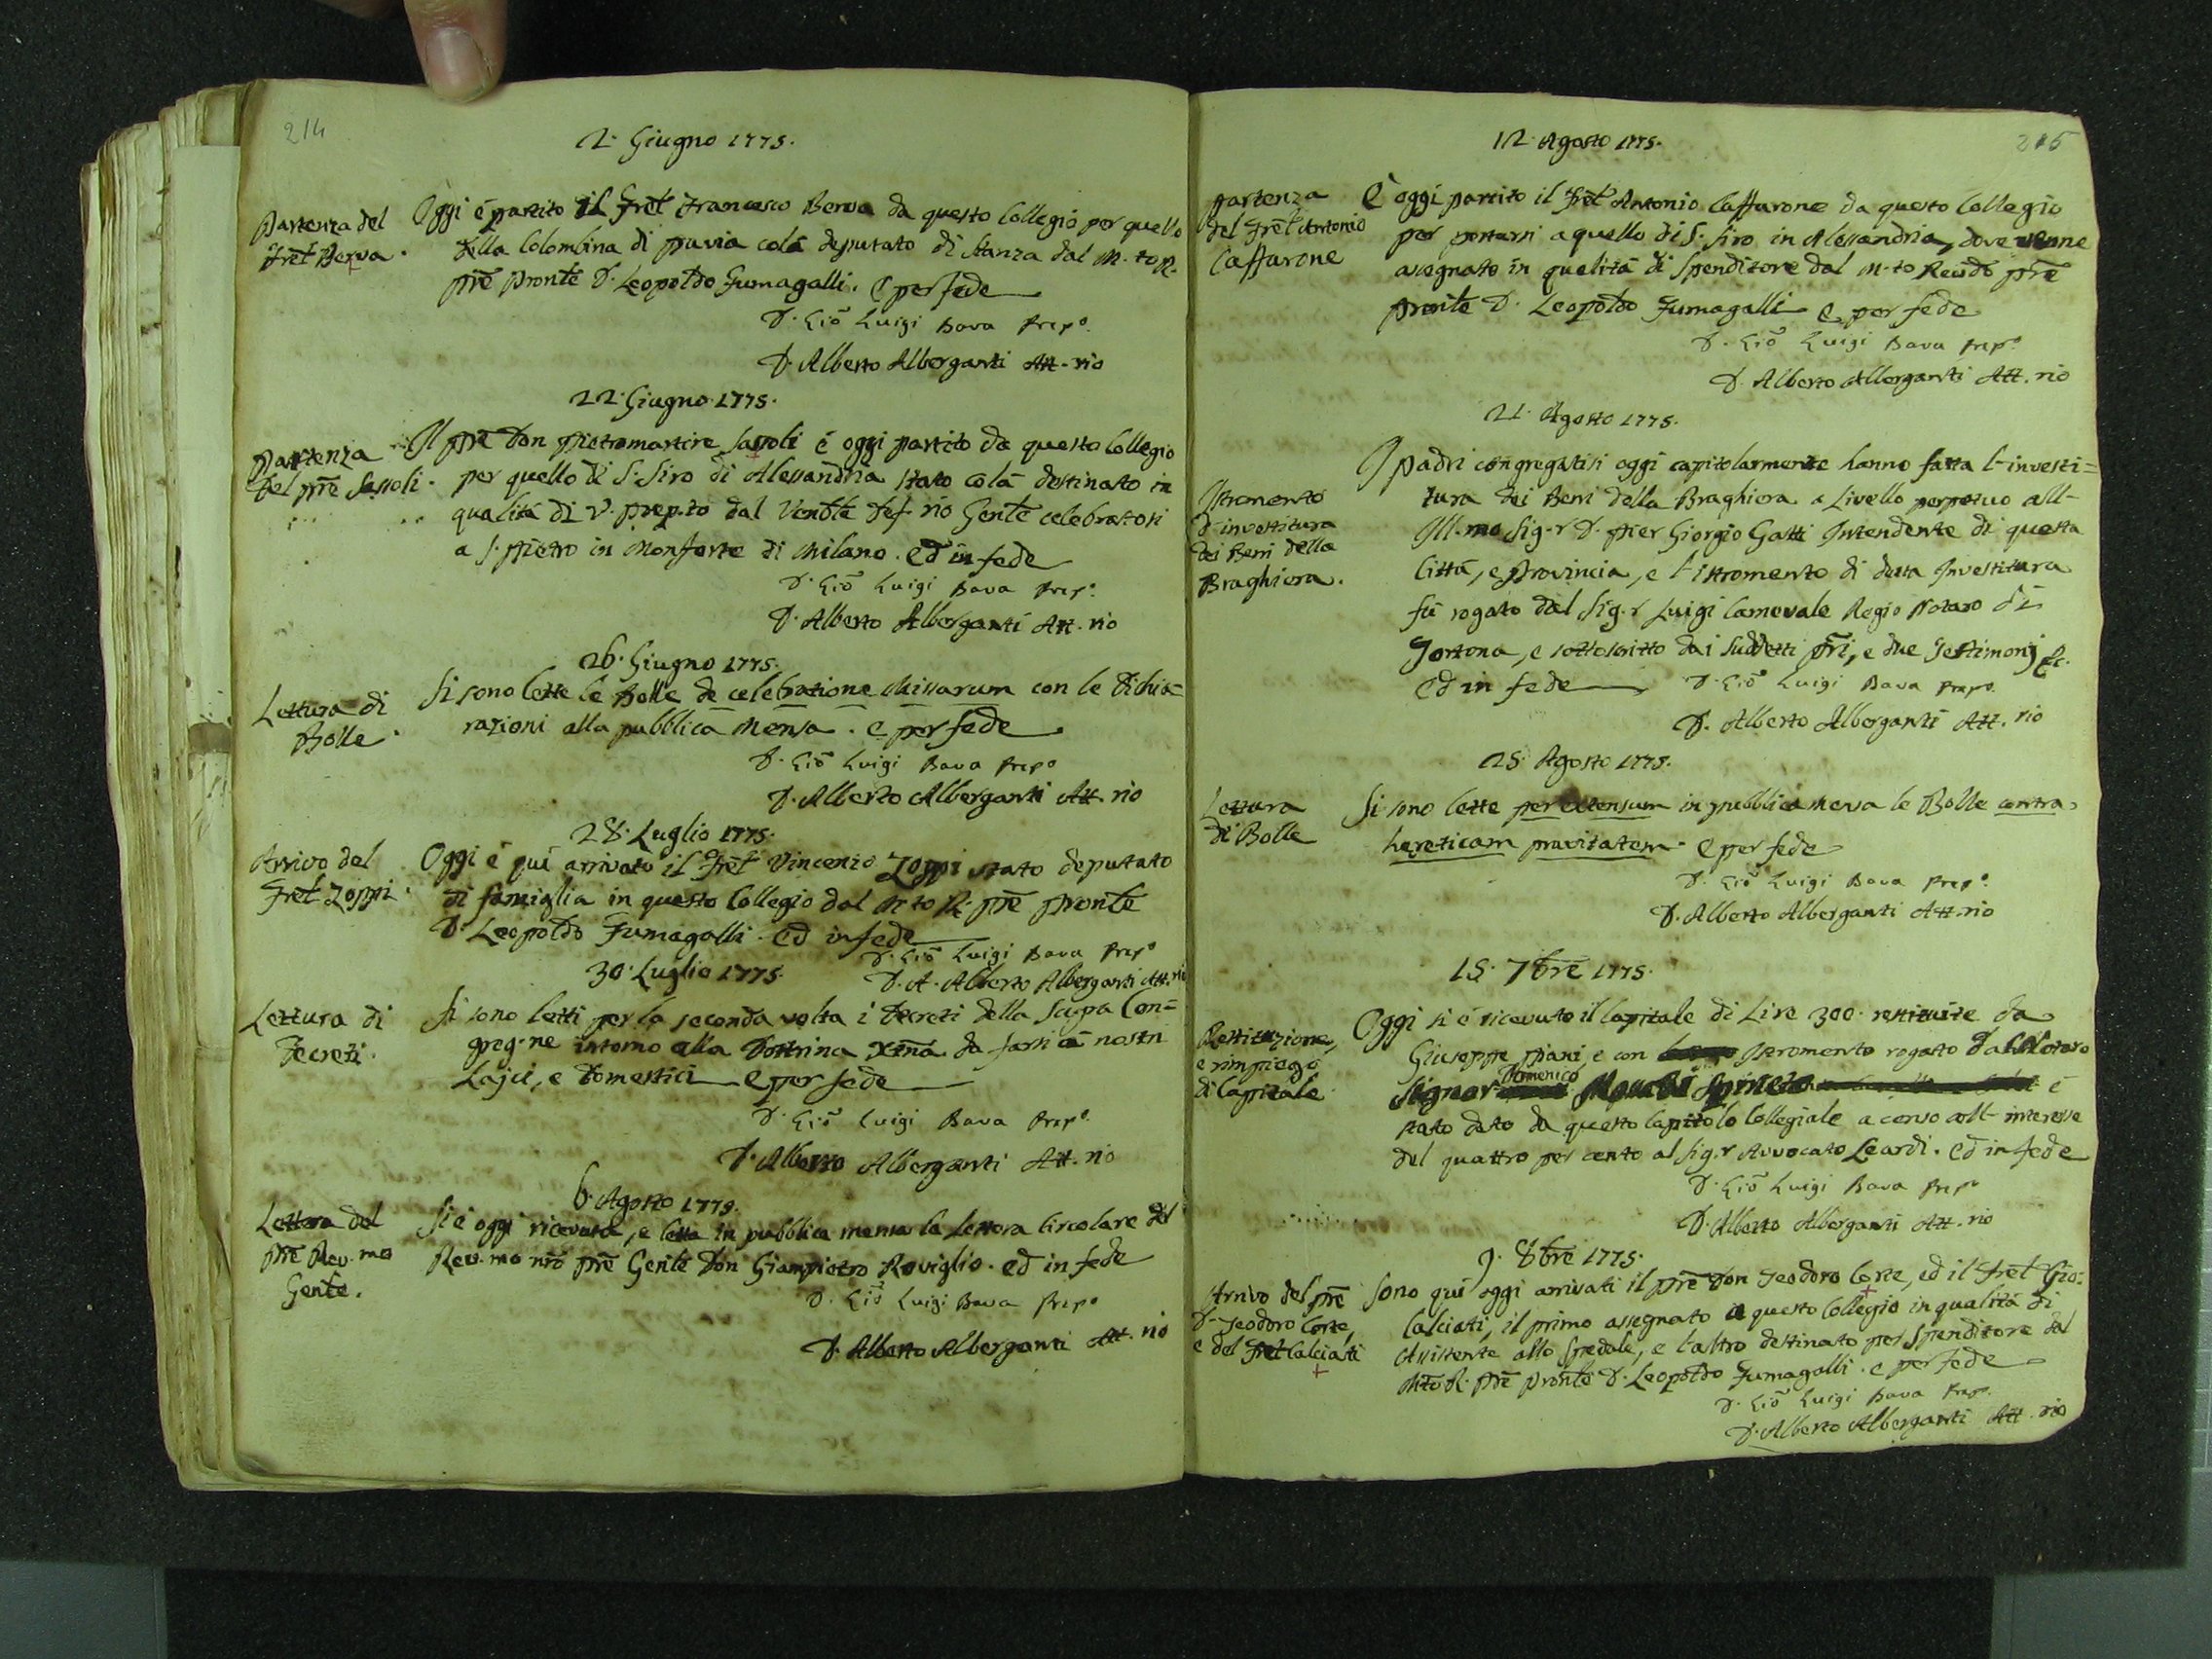 214
2. Giugno 1775.
Partenza del
Frēt Berva.
Oggi è partito il Frēt Francesco Berva da questo Collegio per quello
della Colombina di pavia colà deputato di stanza dal M.to R.
prē Prontē D. Leopoldo Fumagalli. E per fede
D. Giō Luigi Bava Prepo.
D. Alberto Alberganti Att.rio
22. Giugno. 1775.
Partenza
del prē Sassoli.
Il prē Don Pietromartire Sassoli è oggi partito da questo Collegio
per quello di S. Siro di Alessandria stato colà destinato in
qualità di V. prep.to dal Venblē Def.rio Genlē celebratosi
a S. Pietro in Monforte di Milano. Ed in fede
D. Giō Luigi Bava Prepo.
D. Alberto Alberganti Att.rio
26. Giugno 1775.
Lettura di
Bolle.
Si sono lette le Bolle de celebratione Missarum con le Dichia=
razioni alla pubblica Mensa. E per fede
D. Giō Luigi Bava Prepo
D. Alberto Alberganti Att.rio
28. Luglio 1775.
Arrivo del
Frēt Zoppi.
Oggi è quì arrivato il Frēt Vincenzo Zoppi stato deputato
di famiglia in questo Collegio dal M.to R. prē prontē
D. Leopoldo Fumagalli. Ed in fede
D. Giō Luigi Bava Prepo
30. Luglio 1775.
D. A. Alberto Alberganti Att.rio
Lettura di
Decreti.
Si sono letti per la seconda volta i Decreti della Scupa Con=
greg.ne intorno alla Dottrina Xtnā da farsi à nostri
Lajci, e Domestici E per fede
D. Giō Luigi Bava Prepo.
D. Alberto Alberganti Att.rio
6. Agosto 1775.
Lettera del
prē Rev.mo
Genlē.
Si è oggi ricevuta, e letta in pubblica mensa la lettera Circolare del
Rev.mo nrō prē Genlē Don Giampietro Roviglio. Ed in fede
D. Giō Luigi Bava Prepo
D. Alberto Alberganti Att.rio
215
12. Agosto 1775.
partenza
del Frēt Antonio
Caffarone
È oggi partito il Frēt Antonio Caffarone da questo Collegio
per portarsi a quello di S. Siro in Alessandria, dove venne
assegnato in qualità di Spenditore dal M.to Revdō prē
prontē D. Leopoldo Fumagalli E per fede
D. Giō Luigi Bava Prepo
D. Alberto Alberganti Att.rio
21. Agosto 1775.
Istromento
d'investitura
dei Beni della
Braghiera.
I padri congregatisi oggi capitolarmente hanno fatta l'investi=
tura dei Beni della Braghiera a Livello perpetuo all'
Ill.mo Sig.r D. Pier Giorgio Gatti Intendente di questa
Città, e Provincia, e l'istromento di detta Investitura
fù rogato dal Sig.r Luigi Carnevale Regio Notaro di
Tortona, e sottoscritto dai suddetti pri, e due Testimonj &c.
Ed in fede D. Giō Luigi Bava Prepo.
D. Alberto Alberganti Att.rio
25. Agosto 1775.
Lettura
di Bolle
Si sono lette per extensum in pubblica Mensa le Bolle contra
hereticam pravitatem. E per fede
D. Giō Luigi Bava Prepo.
D. Alberto Alberganti Att.rio
15. 7brē 1775.
Restituzione,
e rimpiego
di Capitale.
Oggi si è ricevuto il Capitale di Lire 300. restituite da
Giuseppe Piani, e con Istromento rogato Dal Notaro
Domenico
Signor Spineto è
stato dato da questo Capitolo Collegiale a censo coll' interesse
del quattro per cento al Sig.r Avvocato Leardi. Ed in fede
D. Giō Luigi Bava Prepo
D. Alberto Alberganti Att.rio
9. 8brē 1775.
Arrivo del prē
D. Teodoro Corte,
e del Frēt Calciati
Sono quì oggi arrivati il prē Don Teodoro Corte, ed il Frēt Gio:
Calciati, il primo assegnato a questo Collegio in qualità di
Assistente allo Spedale, e l'altro destinato per Spenditore dal
Mtō R. prē prontē D. Leopoldo Fumagalli. e per fede
D. Giō Luigi Bava Prepo.
D. Alberto Alberganti Att.rio